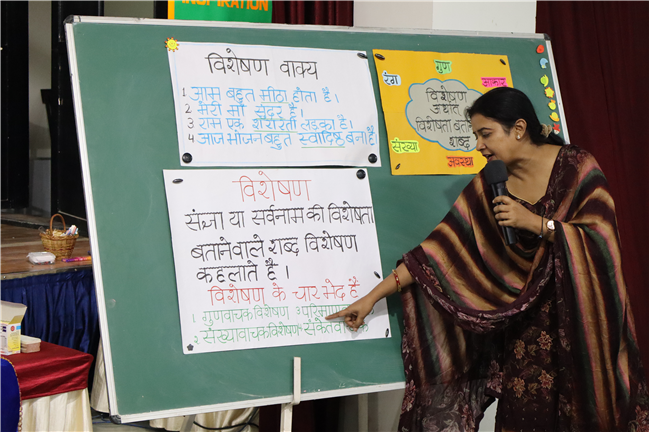 INSPIRATION
विशेषण वाक्य
1 आम बहुत मीठा होता है।
2 मेरी माँ सुंदर है।
3 राम एक शरारती लड़का है।
4 आज भोजन बहुत स्वादिष्ट बना है
गुण
रंग
आकार
विशेषण
अर्थात
विशेषता बताने
शब्द
संख्या
अवस्था
विशेषण
संज्ञा या सर्वनाम की विशेषता
बतानेवाले शब्द विशेषण
कहलाते है।
विशेषण के चार भेद है
1 गुणवाचक विशेषण 3
2 संख्यावाचक विशेषण